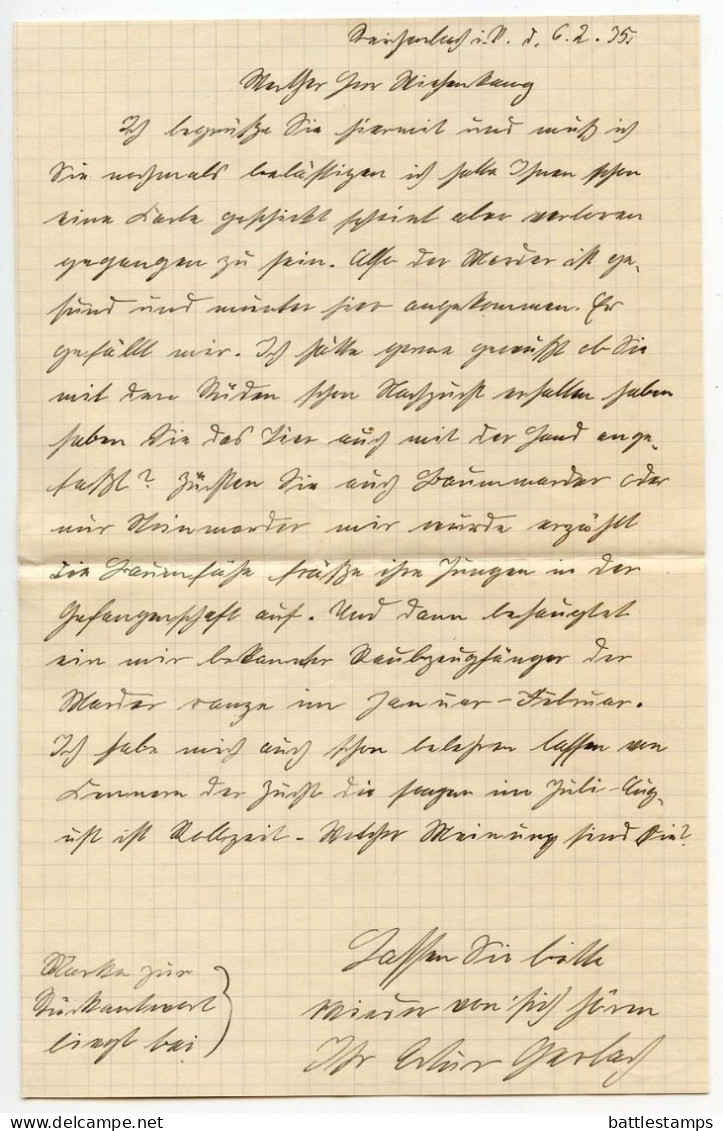 Reichenbach i. V. d. 6. 2. 35.
Werther Herr Niesenkang
Ich begrüße Sie hiermit und muß ich
Sie nochmals belästigen ich hatte Ihnen schon
eine Karte geschickt scheint aber verloren
gegangen zu sein. Also der Marder ist ge-
sund und munter hier angekommen. Er
gefällt mir. Ich hätte gerne gewußt ob Sie
mit dem Rüden schon Nachzucht erhalten haben
haben Sie das Tier auch mit der Hand ange-
faßt? Züchten Sie auch Baummarder oder
nur Steinmarder mir wurde erzählt
die Baumfähe fräße ihre Jungen in der
Gefangenschaft auf. Und dann behauptet
ein mir bekannter Raubzeugfänger der
Marder ranze im Januar-Februar.
Ich habe mich auch schon belehren lassen von
Kennern der Zucht die sagen im Juli-Aug-
ust ist Rollzeit. Welcher Meinung sind Sie?
Lassen Sie bitte
wieder von sich hören
Ihr Artur Gerlach
Marke zur
Rückantwort
liegt bei
battlestamps